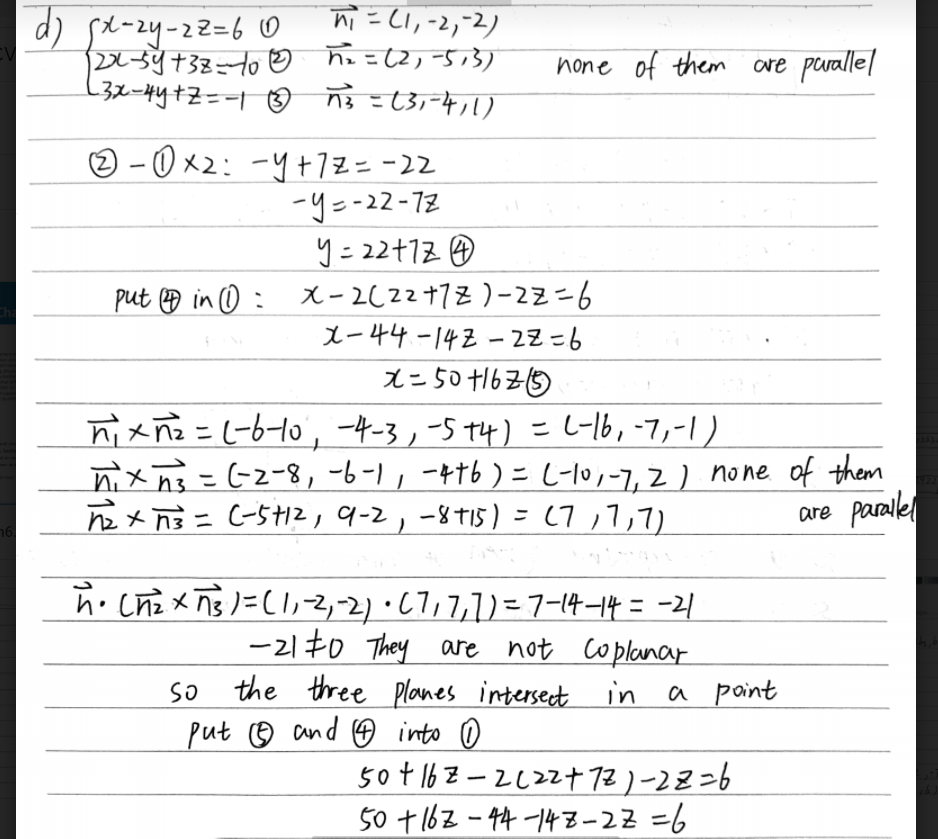 d) { x-2y-2z=6 ① n₁⃗ = (1, -2, -2)
2x-5y+3z=-10 ② n₂⃗ = (2, -5, 3) none of them are parallel
3x-4y+z=-1 ③ n₃⃗ = (3, -4, 1)
② - ① ×2: -y+7z = -22
-y = -22-7z
y = 22+7z ④
put ④ in ① : x-2(22+7z)-2z=6
x-44-14z-2z=6
x = 50+16z ⑤
n₁⃗ × n₂⃗ = (-6-10, -4-3, -5+4) = (-16, -7, -1)
n₁⃗ × n₃⃗ = (-2-8, -6-1, -4+6) = (-10, -7, 2) none of them
n₂⃗ × n₃⃗ = (-5+12, 9-2, -8+15) = (7, 7, 7) are parallel
n⃗ · (n₂⃗ × n₃⃗) = (1, -2, -2) · (7, 7, 7) = 7-14-14 = -21
-21 ≠ 0 They are not coplanar
so the three planes intersect in a point
put ⑤ and ④ into ①
50+16z-2(22+7z)-2z=6
50+16z-44-14z-2z=6